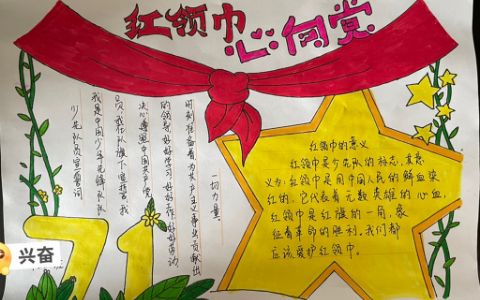 红领巾心向党
少先队员宣誓词
我是中国少年先锋队队
员,我在队旗下宣誓我
决心遵照中国共产党
的领导,好好学习,好好工作,好好劳动,
时刻准备着为共产主义事业贡献出
一切力量。
红领巾的意义
红领巾是少先队的标志,其意
义为:红领巾是用中国人民的鲜血染
红的。它代表着无数英雄的心血,
红领巾是红旗的一角,象
征着革命的胜利,我们都
应该爱护红领巾。
71
兴奋